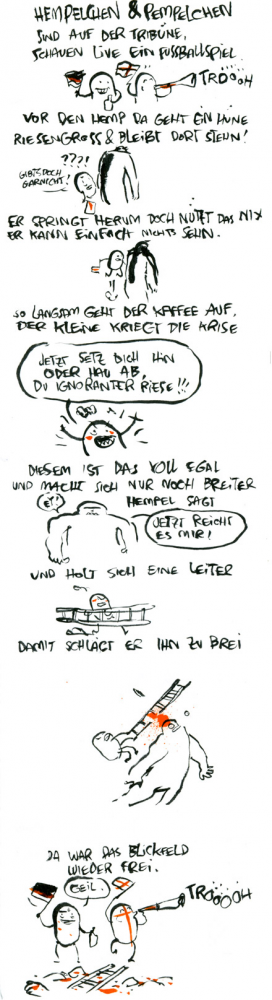 HEMPELCHEN & PEMPELCHEN
SIND AUF DER TRIBÜNE,
SCHAUEN LIVE EIN FUSSBALLSPIEL.
TRÖÖOH
VOR DEN HEMP DA GEHT EIN HÜNE
RIESENGROSS & BLEIBT DORT STEHN!
????
GIBTS DOCH
GARNICHT!
ER SPRINGT HERUM DOCH NÜTZT DAS NIX
ER KANN EINFACH NICHTS SEHN.
SO LANGSAM GEHT DER KAFFEE AUF,
DER KLEINE KRIEGT DIE KRISE
JETZT SETZ DICH HIN
ODER HAU AB,
DU IGNORANTER RIESE!!!
DIESEM IST DAS VOLL EGAL
UND MACHT SICH NUR NOCH BREITER
EY!
HEMPEL SAGT
JETZT REICHT
ES MIR!
UND HOLT SICH EINE LEITER
DAMIT SCHLÄGT ER IHN ZU BREI
DA WAR DAS BLICKFELD
WIEDER FREI.
GEIL.
TRÖÖOOH